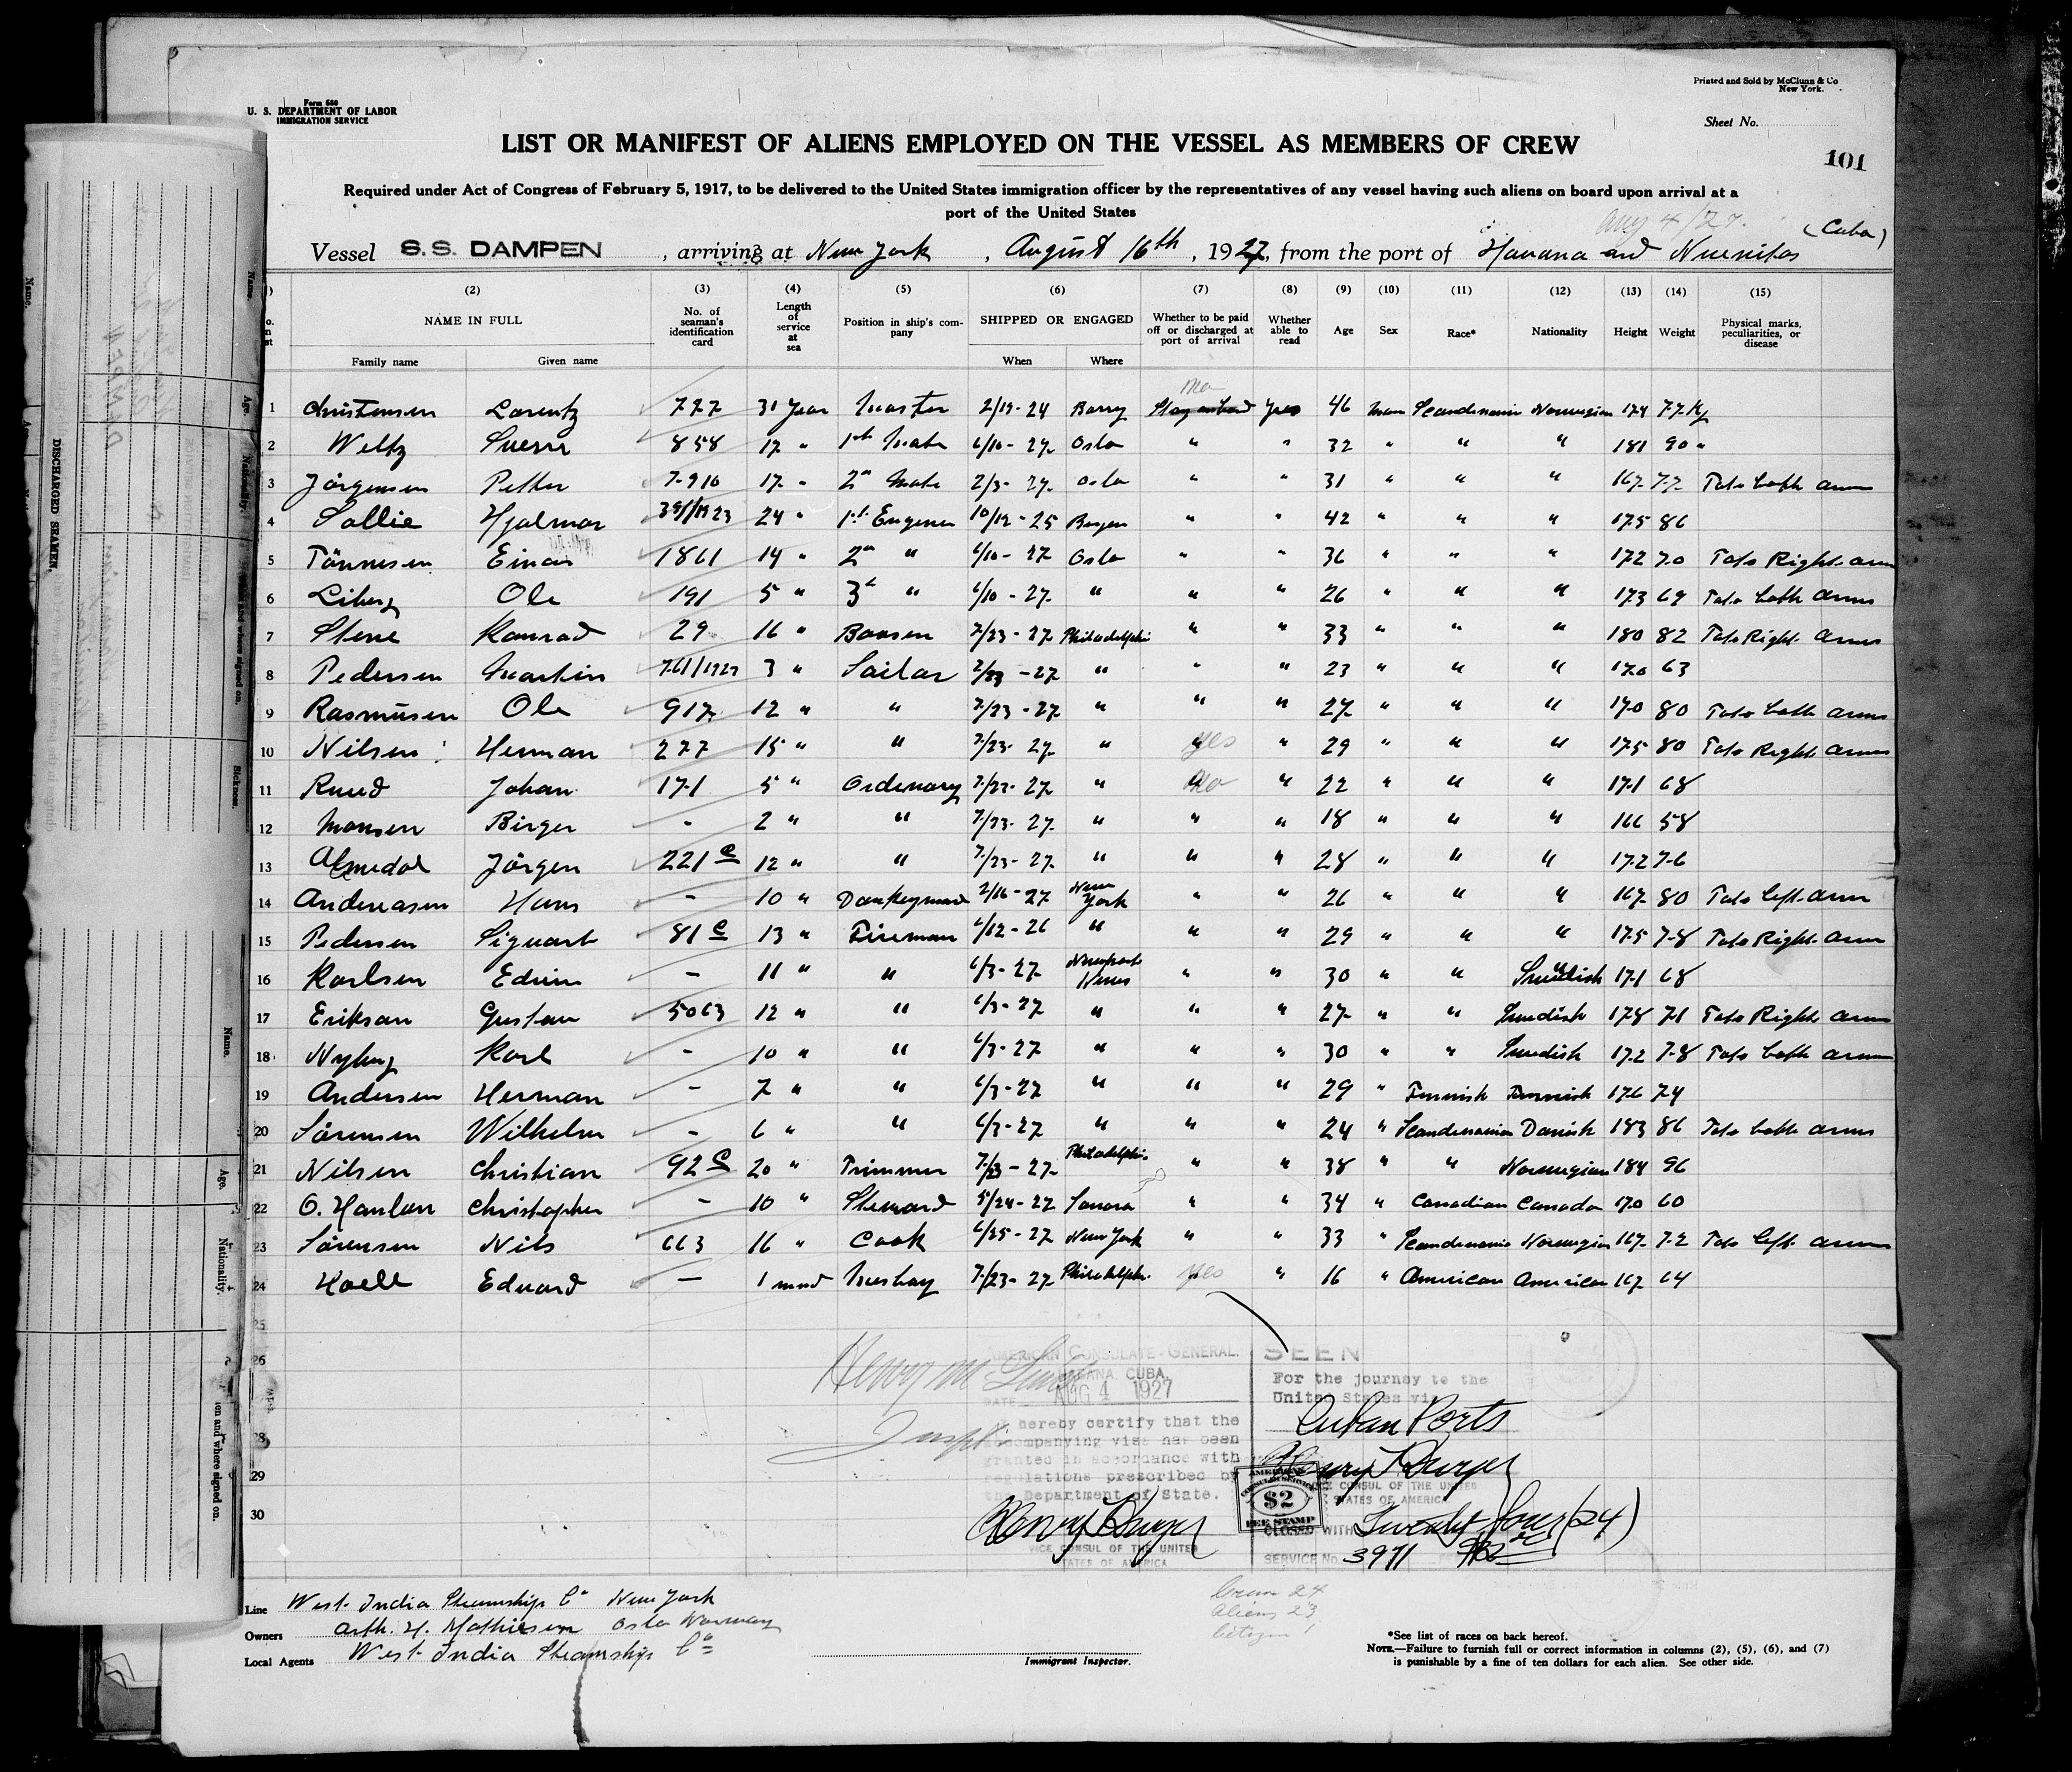 Printed and Sold by McClunn & Co
New York.
Form 680
U. S. DEPARTMENT OF LABOR
IMMIGRATION SERVICE
Sheet No.
LIST OR MANIFEST OF ALIENS EMPLOYED ON THE VESSEL AS MEMBERS OF CREW
101
Required under Act of Congress of February 5, 1917, to be delivered to the United States immigration officer by the representatives of any vessel having such aliens on board upon arrival at a
port of the United States
Aug 4/27.
(Cuba)
Vessel S.S. DAMPEN, arriving at New York, August 16th, 1927, from the port of Havana and Nuevitas
(2) (3) (4) (5) (6) (7) (8) (9) (10) (11) (12) (13) (14) (15)
NAME IN FULL No. of seaman's identification card Length of service at sea Position in ship's company SHIPPED OR ENGAGED Whether to be paid off or discharged at port of arrival Whether able to read Age Sex Race* Nationality Height Weight Physical marks, peculiarities, or disease
Family name Given name When Where
1 Christensen Lorentz 777 31 Year Master 2/19-24 Barry Stay onboard Yes 46 Man Scandinavin Norwegian 174 77 Kg
2 Weltz Sverre 858 17 " 1st Mate 6/10-27 Oslo " " 32 " " " 181 90 "
3 Jörgensen Petter 7910 17 " 2n Mate 2/3-27 Oslo " " 31 " " " 167 77 Tato both arms
4 Sollie Hjalmar 391/1923 24 " 1st Enginer 10/12-25 Bergen " " 42 " " " 175 86
5 Tönnesen Einar 1861 14 " 2n " 6/10-27 Oslo " " 36 " " " 172 70 Tato Right arm
6 Liberg Ole 191 5 " 3d " 6/10-27 " " " 26 " " " 173 69 Tato both arms
7 Stene Konrad 29 16 " Boosen 7/23-27 Philadelphi " " 33 " " " 180 82 Tato Right arms
8 Pedersen Martin 761/1927 3 " Sailor 7/23-27 " " " 23 " " " 170 63
9 Rasmüsen Ole 917 12 " " 7/23-27 " " " 27 " " " 170 80 Tato both arms
10 Nilsen Herman 277 15 " " 7/23-27 " yes " 29 " " " 175 80 Tato Right arms
11 Ruud Johan 171 5 " Ordenary 7/23-27 " No " 22 " " " 171 68
12 Monsen Birger - 2 " " 7/23-27 " " " 18 " " " 166 58
13 Almedal Jörgen 221 C 12 " " 7/23-27 " " " 28 " " " 172 76
14 Andereasen Hans - 10 " Donkeyman 2/16-27 New York " " 26 " " " 167 80 Tato left arm
15 Pedersen Siguart 81 C 13 " Fireman 6/12-26 " " " 29 " " " 175 78 Tato Right arm
16 Karlsen Edvin - 11 " " 6/3-27 Newport News " " 30 " " Swedish 171 68
17 Erikson Gustav 5063 12 " " 6/3-27 " " " 27 " " Swedish 178 71 Tato Right arm
18 Nyberg Karl - 10 " " 6/3-27 " " " 30 " " Swedish 172 78 Tato both arms
19 Andersen Herman - 7 " " 6/3-27 " " " 29 " Finnish Finnish 176 74
20 Sörensen Wilhelm - 6 " " 6/3-27 " " " 24 " Scandinavian Danish 183 86 Tato both arms
21 Nilsen Christian 92 C 20 " Trimmer 7/23-27 Philadelphi. " " 38 " " Norwegian 184 96
22 O. Hanlon Christopher - 10 " Steward 5/24-27 " " 34 " Canadian Canada 170 60
23 Sörensen Nils 663 16 " Cook 6/25-27 New York " " 33 " Scandinavin Norwegian 167 72 Tato left arms
24 Eduard - 1 Mesboy 7/23-27 Philadelphi. yes " 16 " American American 167 64
25
26
28
29
30
AMERICAN CONSULATE-GENERAL.
HAVANA, CUBA.
DATE AUG 4 1927
I hereby certify that the
accompanying visa has been
granted in accordance with
regulations prescribed by
the Department of State.
VICE CONSUL OF THE UNITED
STATES OF AMERICA
SEEN
For the journey to the
United States via
Cuban Ports
VICE CONSUL OF THE UNITED
STATES OF AMERICA
AMERICAN
CONSULAR SERVICE
$2
FEE STAMP
CLOSED WITH Twenty four (24)
SERVICE No. 3971
Line West India Steamship Co New York
Owners Arth. H. Mathiesen Oslo Norway
Local Agents West India Steamship Co
Crew 24
Aliens 23
Citizen 1
Immigrant Inspector.
*See list of races on back hereof.
NOTE.—Failure to furnish full or correct information in columns (2), (5), (6), and (7)
is punishable by a fine of ten dollars for each alien. See other side.
DISCHARGED SEAMEN.
Name.
Age.
Nationality.
Sickness.
Name.
Age.
Nationality.